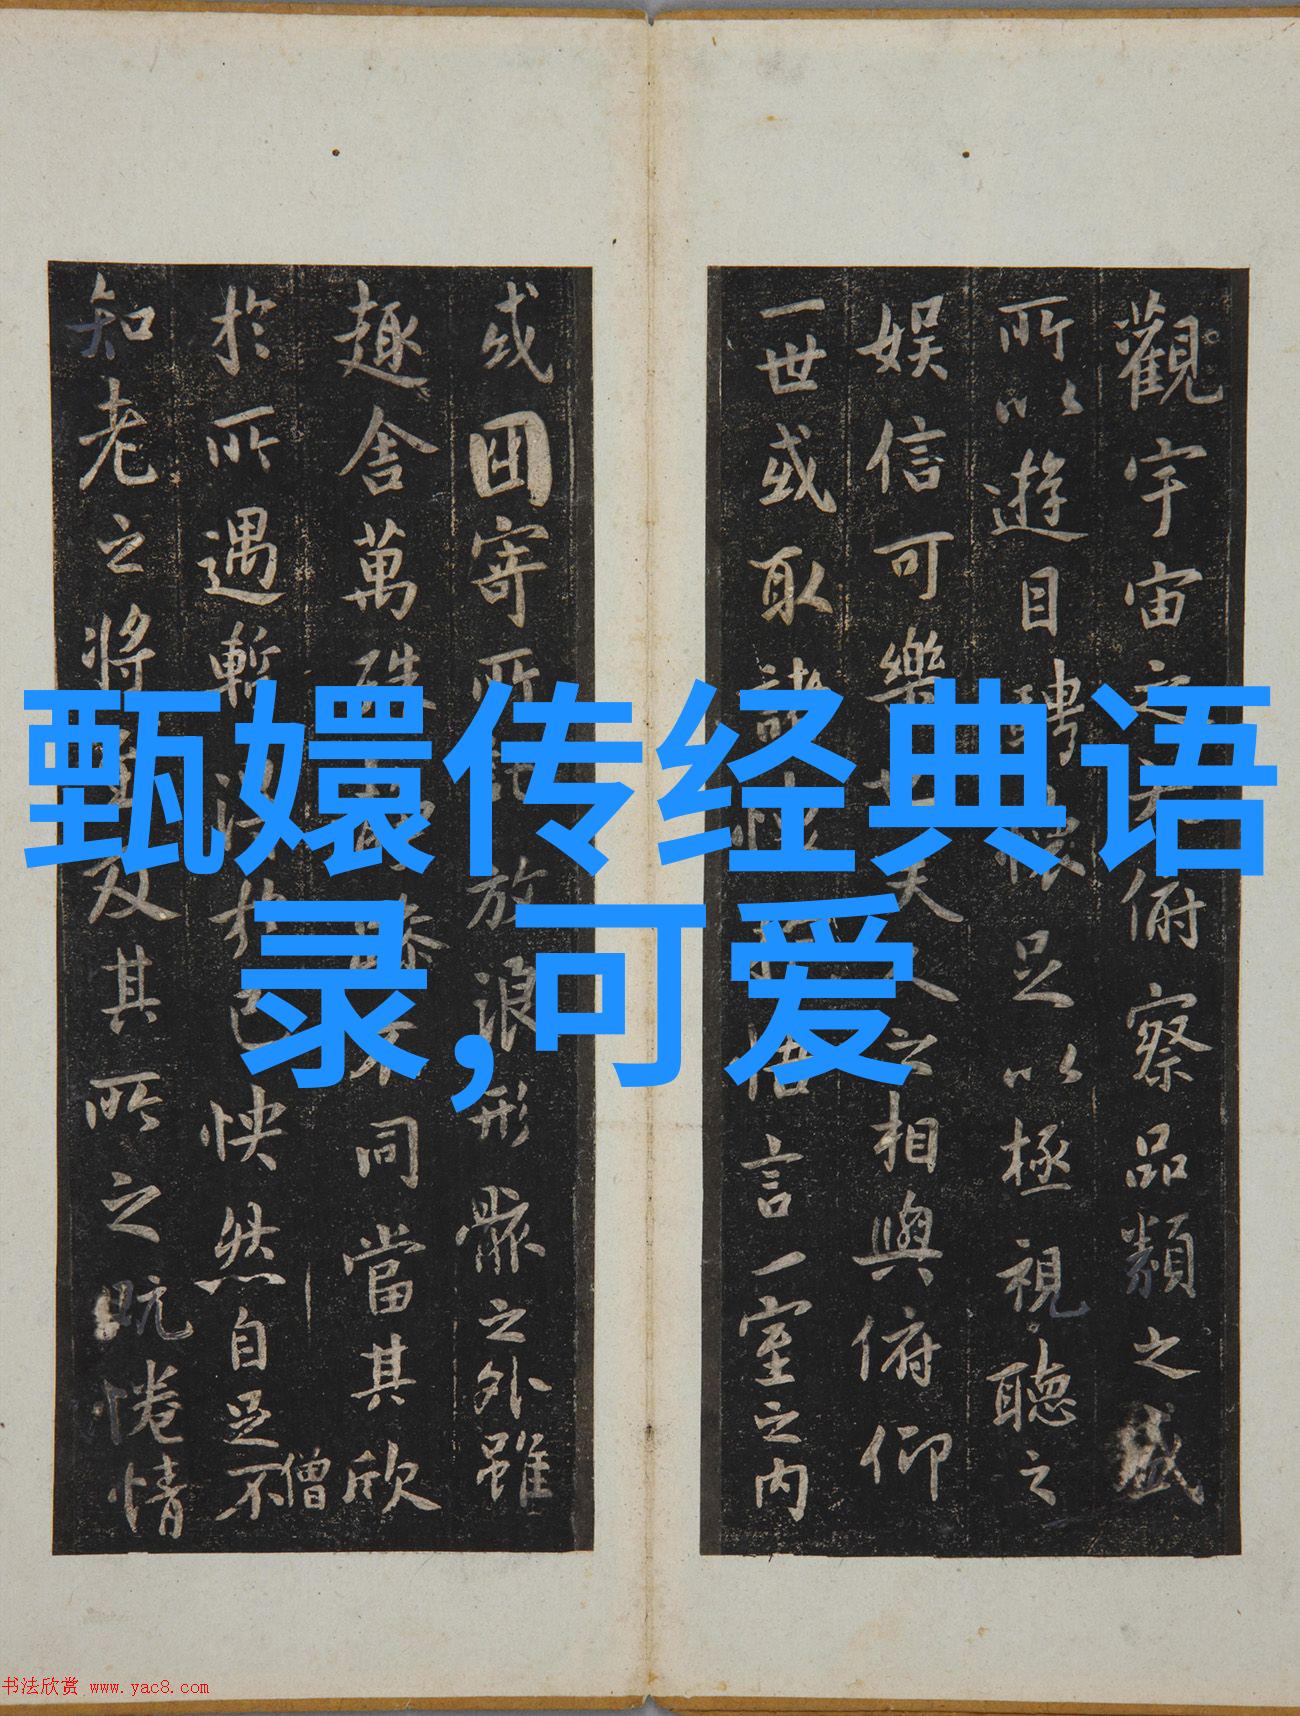 甄嬛传经典语
录,可爱
觀宇宙之俯察品類之盛
所以遊目騁懷足以極視聽之
娛信可樂也夫人之相與俯仰
一世或取諸懷悟言一室之內
或因寄所託放浪形骸之外雖
趣舍萬殊躁不同當其欣
僧
於所遇暫得於己快然自足不
知老之將至及其所之既惓情
书法欣赏 www.yac8.com